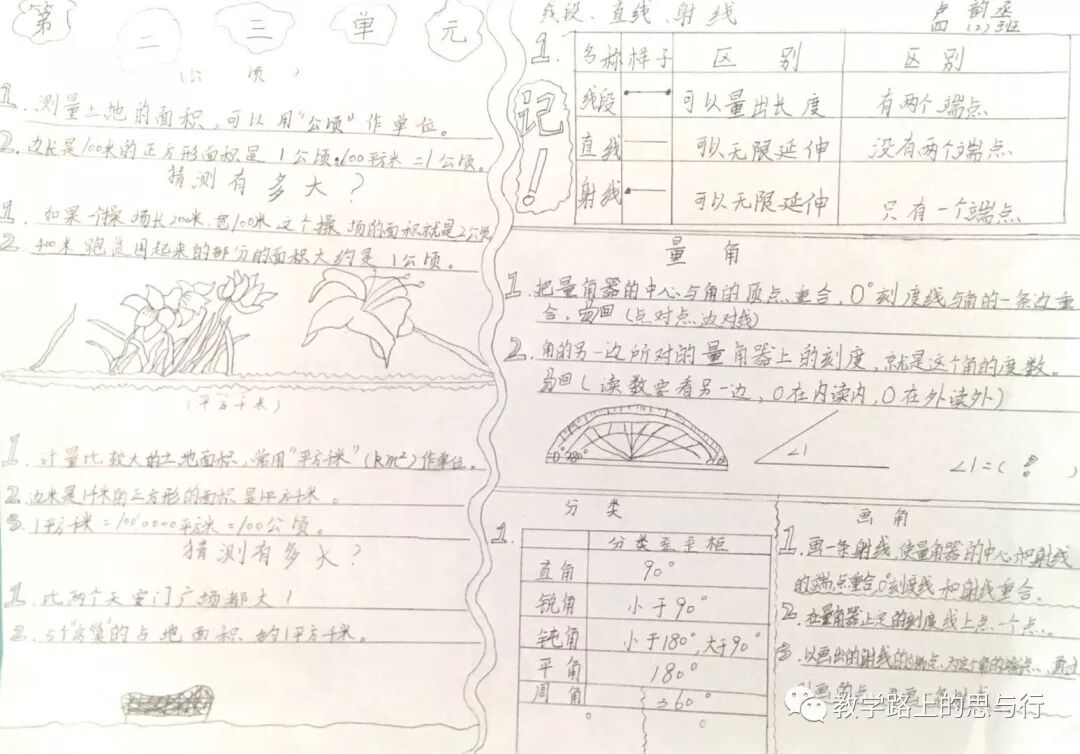 第二三单元
(公 顷)
1. 测量土地的面积,可以用"公顷"作单位。
2. 边长是100米的正方形面积是1公顷.100平方米=1公顷。
猜测有多大?
1. 如果一个操场长200米.宽100米.这个操场的面积就是2公顷
2. 400米跑道围起来的部分的面积大约是1公顷。
(平方千米)
1. 计量比较大的土地面积,常用"平方千米"(km²)作单位。
2. 边米是1千米的正方形的面积是1平方千米。
3. 1平方千米=1000000平方米=100公顷。
猜测有多大?
1. 比两个天安门广场都大!
2. 5个"鸟巢"的占地面积约1平方千米。
线段、直线、射线
卢韵丞
四(2)班
1. 名称 样子 区别 区别
记!
线段 可以量出长度 有两个端点
直线 可以无限延伸 没有两个端点
射线 可以无限延伸 只有一个端点
量角
1. 把量角器的中心与角的顶点重合,0°刻度线与角的一条边重
合,(点对点,边对线)
2. 角的另一边所对的量角器上的刻度,就是这个角的度数。
(读数要看另一边,0在内读内,0在外读外)
∠1
∠1=( ? )
分类
1. 分类
直角 90°
锐角 小于90°
钝角 小于180°,大于90°
平角 180°
周角 360°
画角
1. 画一条射线,使量角器的中心和射线
的端点重合,0°刻度线和射线重合。
2. 在量角器上定的刻度线上点一个点。
3. 以画出的射线的端点为这个角的端点,通过
教学路上的思与行